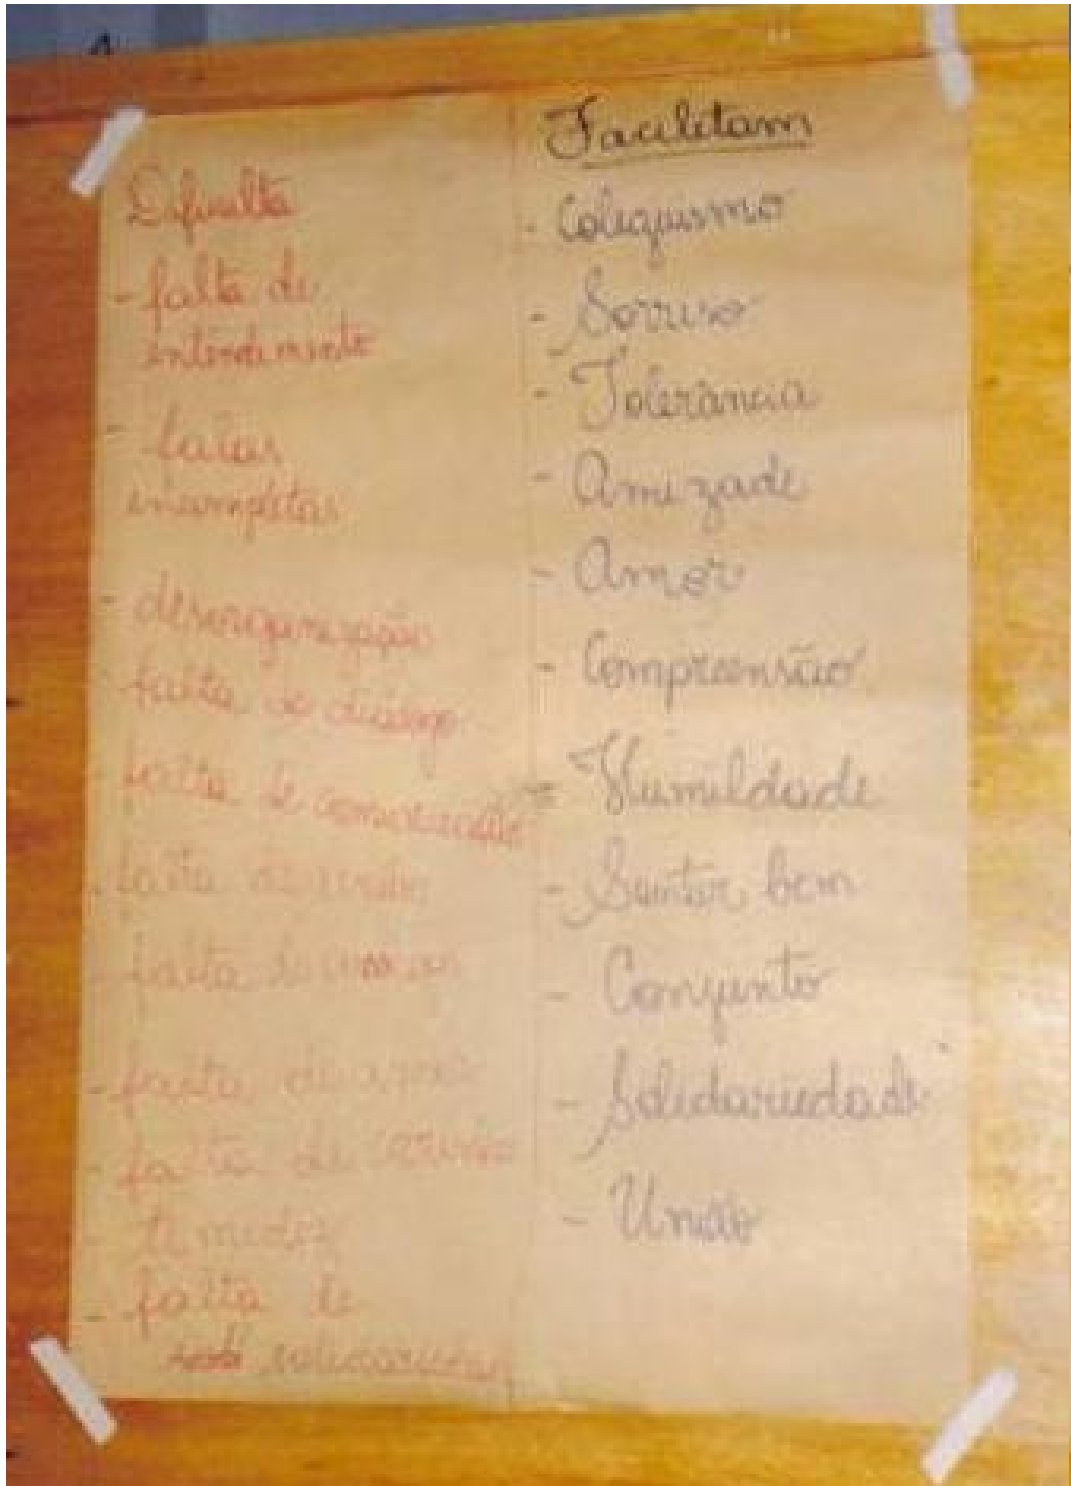 Dificulta
- falta de
entendimento
- falas
incompletas
- desorganização
falta de diálogo
falta de comunicação
falta de
falta de
- falta de
- falta de
- timidez
- falta de
solidariedade
Facilitam
- Coleguismo
- Sorriso
- Tolerância
- Amizade
- Amor
- Compreensão
- Humildade
- Sentir bem
- Conjunto
- Solidariedade
- União